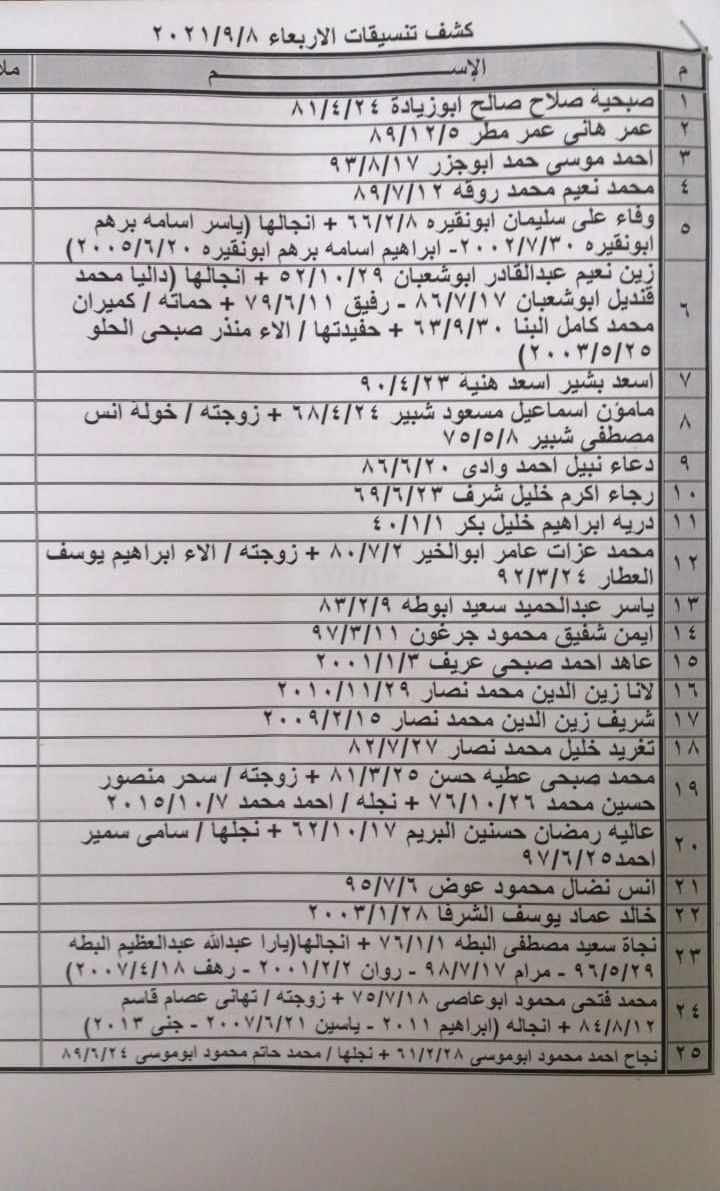 كشف تنسيقات الاربعاء ٢٠٢١/٩/٨
م الإســـــــــــــم ملا
١ صبحية صلاح صالح ابوزيادة ٨١/٤/٢٤
٢ عمر هانى عمر مطر ٨٩/١٢/٥
٣ احمد موسى حمد ابوجزر ٩٣/٨/١٧
٤ محمد نعيم محمد روقه ٨٩/٧/١٢
٥ وفاء على سليمان ابونقيره ٦٦/٢/٨ + انجالها (ياسر اسامه برهم
ابونقيره ٢٠٠٢/٧/٣٠- ابراهيم اسامه برهم ابونقيره ٢٠٠٥/٦/٢٠)
٦ زين نعيم عبدالقادر ابوشعبان ٥٢/١٠/٢٩ + انجالها (داليا محمد
قنديل ابوشعبان ٨٦/٧/١٧ - رفيق ٧٩/٦/١١ + حماته / كميران
محمد كامل البنا ٦٣/٩/٣٠ + حفيدتها / الاء منذر صبحى الحلو
٢٠٠٣/٥/٢٥)
٧ اسعد بشير اسعد هنية ٩٠/٤/٢٣
٨ مامؤن اسماعيل مسعود شبير ٦٨/٤/٢٤ + زوجته / خولة انس
مصطفى شبير ٧٥/٥/٨
٩ دعاء نبيل احمد وادى ٨٦/٦/٢٠
١٠ رجاء اكرم خليل شرف ٦٩/٦/٢٣
١١ دريه ابراهيم خليل بكر ٤٠/١/١
١٢ محمد عزات عامر ابوالخير ٨٠/٧/٢ + زوجته / الاء ابراهيم يوسف
العطار ٩٢/٣/٢٤
١٣ ياسر عبدالحميد سعيد ابوطه ٨٣/٢/٩
١٤ ايمن شفيق محمود جرغون ٩٧/٣/١١
١٥ عاهد احمد صبحى عريف ٢٠٠١/١/٣
١٦ لانا زين الدين محمد نصار ٢٠١٠/١١/٢٩
١٧ شريف زين الدين محمد نصار ٢٠٠٩/٢/١٥
١٨ تغريد خليل محمد نصار ٨٢/٧/٢٧
١٩ محمد صبحى عطيه حسن ٨١/٣/٢٥ + زوجته / سحر منصور
حسين محمد ٧٦/١٠/٢٦ + نجله / احمد محمد ٢٠١٥/١٠/٧
٢٠ عاليه رمضان حسنين البريم ٦٢/١٠/١٧ + نجلها / سامى سمير
احمد٩٧/٦/٢٥
٢١ انس نضال محمود عوض ٩٥/٧/٦
٢٢ خالد عماد يوسف الشرفا ٢٠٠٣/١/٢٨
٢٣ نجاة سعيد مصطفى البطه ٧٦/١/١ + انجالها(يارا عبدالله عبدالعظيم البطه
٩٦/٥/٢٩ - مرام ٩٨/٧/١٧ - روان ٢٠٠١/٢/٢ - رهف ٢٠٠٧/٤/١٨)
٢٤ محمد فتحى محمود ابوعاصى ٧٥/٧/١٨ + زوجته / تهانى عصام قاسم
٨٤/٨/١٢ + انجاله (ابراهيم ٢٠١١ - ياسين ٢٠٠٧/٦/٢١ - جنى ٢٠١٣)
٢٥ نجاح احمد محمود ابوموسى ٦١/٢/٢٨ + نجلها / محمد حاتم محمود ابوموسى ٨٩/٦/٢٤